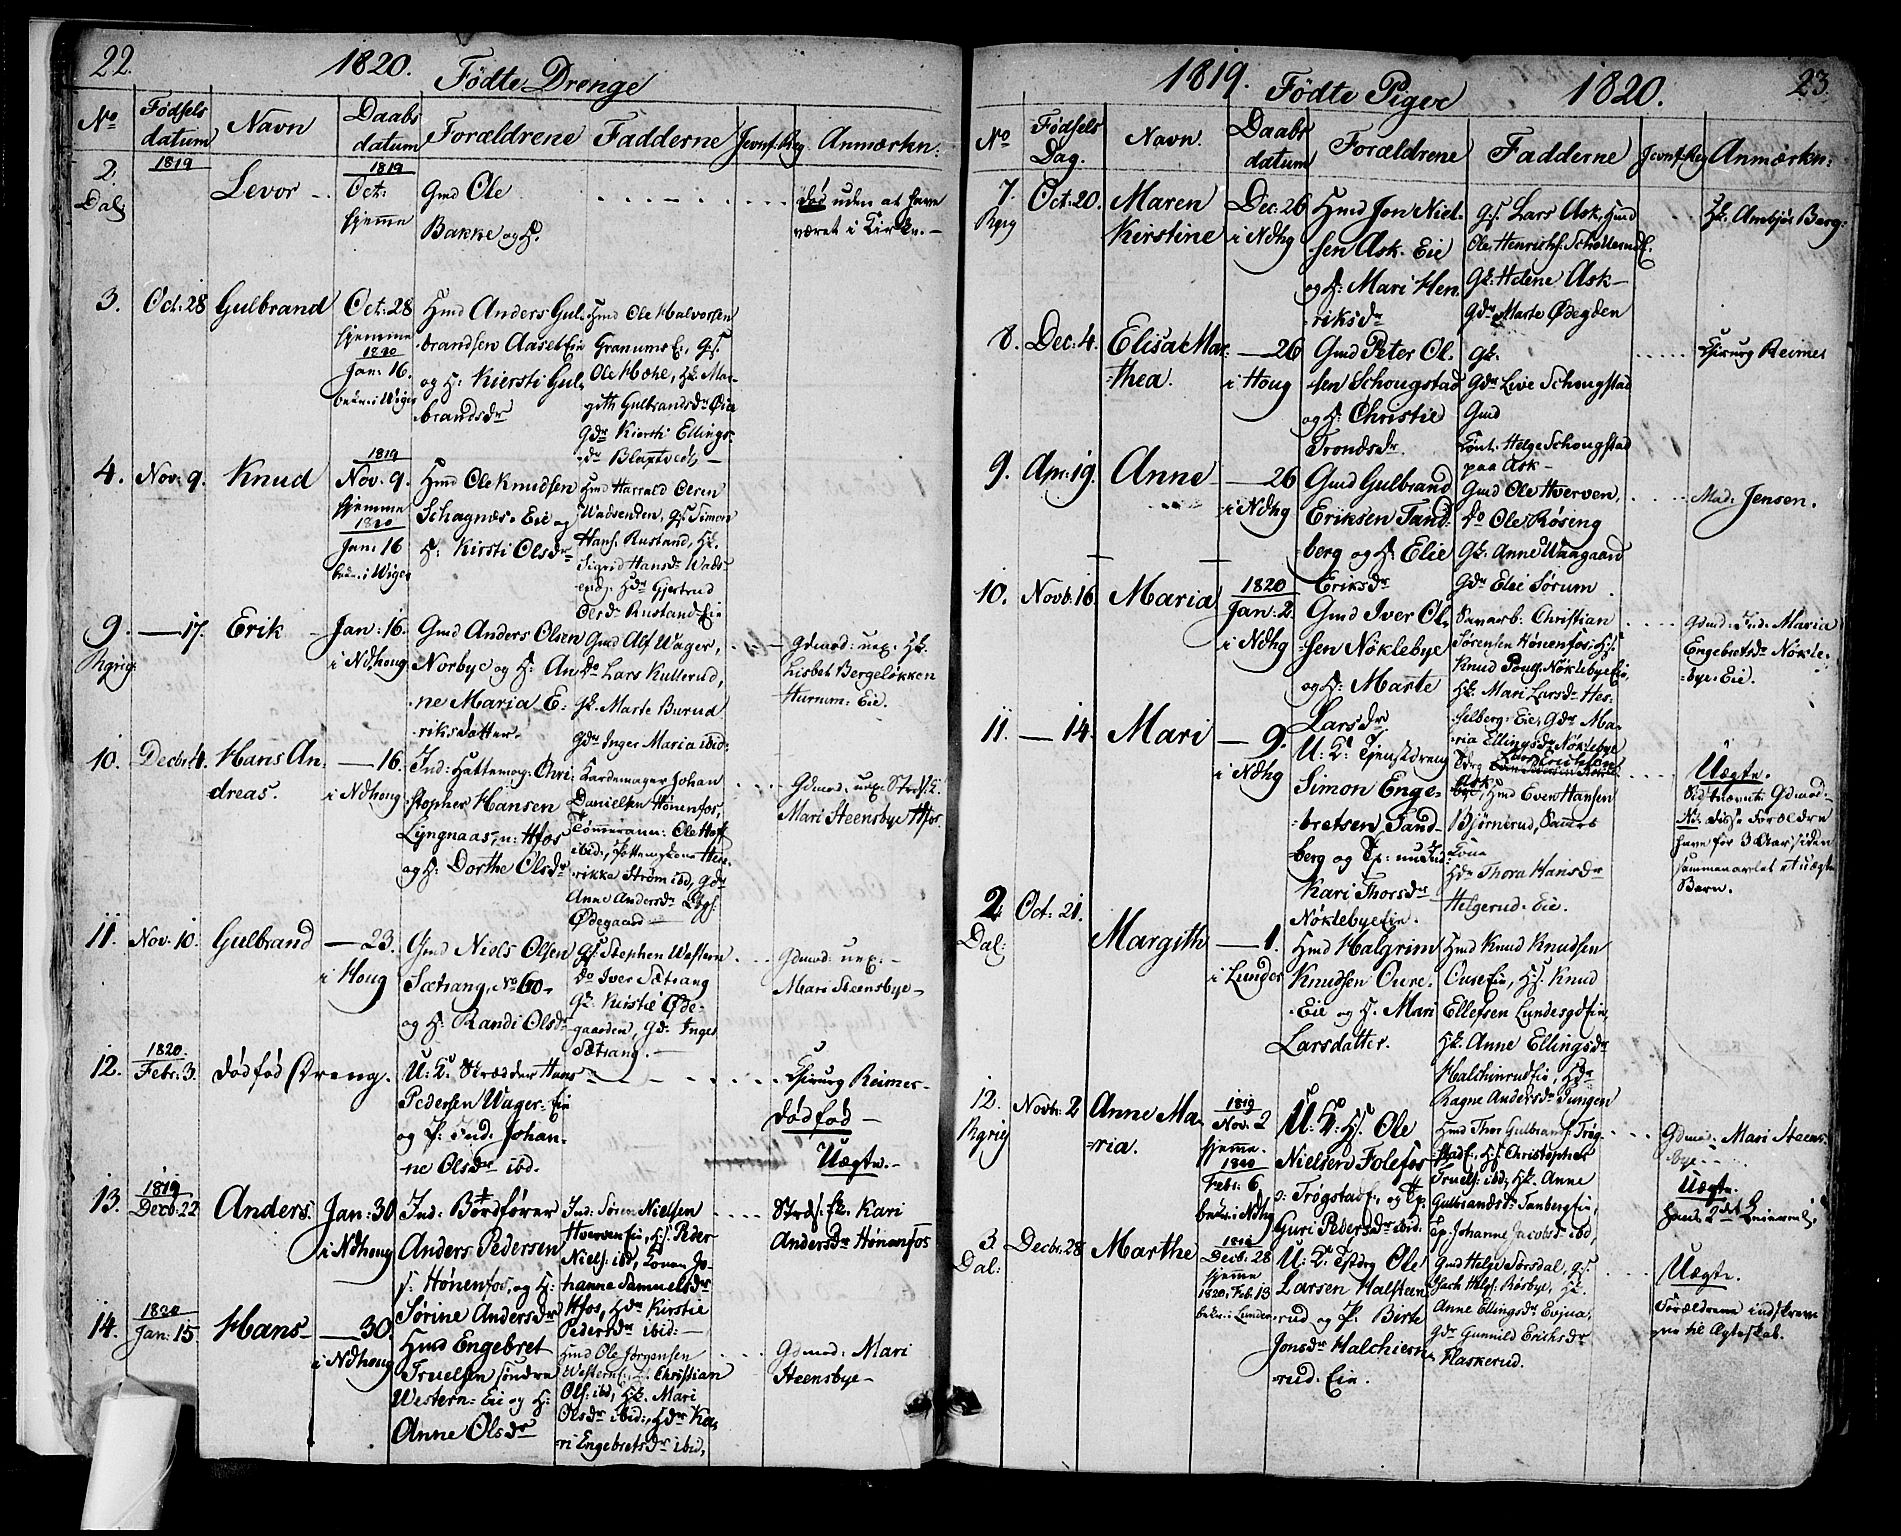 22.
1820.
Födte Drenge
No
Födsels datum
Navn
Daabs datum
Forældrene
Fadderne
Jevnf. Reg.
Anmærkn:
2.
Dal:
1819
Levor
1819
Oct:
hjemme
Gmd Ole
Bakke og H.
död uden at have
været i Kirken.
3.
Oct: 28
Gulbrand
Oct: 28
hjemme
1820
Jan: 16.
bekr. i Wiger
Hmd Anders Gul-
brandsen Aaslet Eie
og H: Kiersti Gul-
brandsdr
Hmd Ole Halvorsen
Granums E:, gS.
Ole Mæhe, Hk. Mar-
gith Gulbrandsdr Øie
Gdr Kiersti Ellings-
dr Blaxtvedt
4.
Nov: 9.
Knud
1819
Nov. 9.
hjemme
1820
Jan: 16
bekr. i Wiger
Hmd Ole Knudsen
Schagnæs. Eie og
H. Kirsti Olsdr
Hmd Harrald Olsen
Wadsenden, gS. Simon
Hans. Rustand, Hk.
Sigrid Hansdr Wads-
end, Hdr Gjertrud
Olsdr Rustand Eie
9.
Rgrig.
17.
Erik
Jan: 16.
i Ndhoug
Gmd Anders Olsen
Norbye og H: An-
ne Maria E-
riksdatter.
Gmd Alf Wager,
do Lars Kullerud,
gk. Marte Burud
Gdr Inger Maria ibid:
Gdmod: uex: Hk.
Lisbet Bergeløkken
Hurum: Eie.
10.
Decbr 4.
Hans An-
dreas.
16.
i Ndhoug
Ind: Hattemag: Chri-
stopher Hansen
Lyngnaas, n: Hfos
og H: Dorthe Olsdr
Kardemager Johan
Danielsen Hönenfos,
Tömmerann: Ole Hoff
ibid:, Pottem.kone Hen-
rikke Ström ibd, Gdr
Anne Andersdr
Ødegaard
Gdmod: uex:
Mari Steensbye Hfos.
11.
Nov. 10.
Gulbrand
23.
i Houg
Gmd Niels Olsen
Sætrang, No 60
og H: Randi Olsdr
gS Stephen Western
do Iver Sætrang
Gk: Kirstie Øde-
gaarden, Gd: Inger
Sætrang.
Gdmod: uex:
Mari Steensbye
12.
1820
Febr: 3.
dödföd Dreng.
U: K: Skrædder Hans
Pedersen Wager: Eie
og P: Ind: Johan-
ne Olsdr ibd.
Chirurg Reimer
Dödföd
Uægte.
13.
1819
Decb: 22
Anders.
Jan: 30
i Ndhoug
Ind: Bordförer
Anders Pedersen
Hönenfos, og H:
Sörine Andersdr
Ind: Sören Nielsen
Hverven Eie, H.S. Peder
Niels. ibd, Konen Jo-
hanne Samuelsdr
Hfos, Hdr Kirstie
Pedersdr ibid:
Stræf. Ek. Kari
Andersdr Hönenfos
14.
1820
Jan: 15
Hans
30.
i Ndhoug
Hmd Engebret
Truelsen söndre
Western: Eie og H:
Anne Olsdr
Hmd Ole Jörgensen
Western E., Christian
Ols. ibd, Hk. Mari
Olsdr ibid:, Hdr Ka-
ri Engebretsdr ibid,
Gdmod: Mari
Steensbye
1819.
Födte Piger
1820.
23.
No
Födsels Dag.
Navn.
Daabs datum
Forældrene
Fadderne
Jevnf. Reg
Anmærkn:
7.
Rgrg
Oct: 20.
Maren
Kirstine
Dec: 26
i Ndhg
Hmd Jon Niel-
sen Ask. Eie
og H: Mari Hen-
riksdr
gS. Lars Ask, Hmd
Ole Henrichs.
Gk: Helene Ask
Gdr Marte Ødegden
Hk. Ambjør Berg:
8.
Dec: 4.
Elisa Mar-
thea.
26
i Houg
Gmd Peter Ol-
sen Schougstad
og H: Christie
Trondsdr.
Gk:
Gdr Live Schougstad
Gmd
Helge Schougstad
paa Ask
Chirurg Reimer
9.
Apr: 19.
Anne
26
i Ndhg
Gmd Gulbrand
Eriksen Tand-
berg og H: Elie
Eriksdr
Gmd Ole Hverven,
do Ole Rösing
Gk: Anne Waagaard
Gdr Elie Sörum
Mad: Jensen.
10.
Novb. 16.
Maria
1820
Jan: 2.
i Ndhg
Gmd Iver Ol-
sen Nöklebye
og H: Marte
Larsdr
Christian
Sörensen Hönenfos, H.S.
Knud Poul. Nöklebye Eie,
Hk. Mari Larsdr Hes-
selberg: Eie, Gdr Ma-
ria Ellingsdr Nöklebye
Gdmd: Ind: Maria
Engebretsdr Nökle-
bye: Eie.
11.
14.
Mari
9.
i Ndhg
U: K: Tjenstdreng
Simon Enge-
bretsen Tand-
berg og Tp:
Kari Thorsdr
Nöklebye Eie.
Hmd Even Hansen
Björnerud, Samts
Kone
Hdr Thora Hansdr
Helgerud. Eie.
Uægte.
Sidstnævnte Gdmod:
No: disse Forældre
have for 3 Aar siden
sammenavlet et uægte
Barn.
2.
Dal:
Oct: 21.
Margith
1.
i Lunder
Hmd Halgrim
Knudsen Oure-
Eie og H. Mari
Larsdatter.
Hmd Knud Knudsen
Oure Eie, H.S. Knud
Ellefsen Lundesgd Eie,
Hk. Anne Ellingsdr
Halchinrud Eie, Hdr
Ragne Andersdr Tungen
12.
Rgrig
Novbr: 2
Anne Ma-
ria.
1819
Nov. 2
hjemme.
1820
Febr: 6
bekr. i Ndhg
U: K: HS. Ole
Nielsen Folefos
: Trögstad E:, og Tp.
Guri Pedersdr ibid.
Hmd Thor Gulbrands. Trög-
stad E., H.S. Christopher
Truels. ibd, Hk. Anne
Gulbrandsdr Tanberg Eie,
Tp. Johanne Jacobsdr ibd,
Gdmod: Mari Steens-
bye
Uægte.
hans 2det Leiermaal,
3.
Dal:
Decbr. 28
Marthe
1819
Decb. 28
hjemme
1820, Feb. 13
bekr. i Lunder
U: K: Ole
Larsen Halsteen-
rud og P. Birte
Jonsdr Halchien-
rud. Eie.
Gmd Helge Sörsdal, gS
Jach Hels. Röisbye, Hk
Anne Ellingsdr Evjua,
Gdr Gunnild Erichsdr
Flaskerud.
Uægte.
Forældrene indskrev-
ne til Ægteskab.